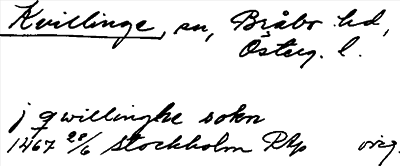 Kvillinge, sn, Bråbo hd,
Österg. l.
j qwillinghe sokn
1467 28/6 Stockholm RAp orig.